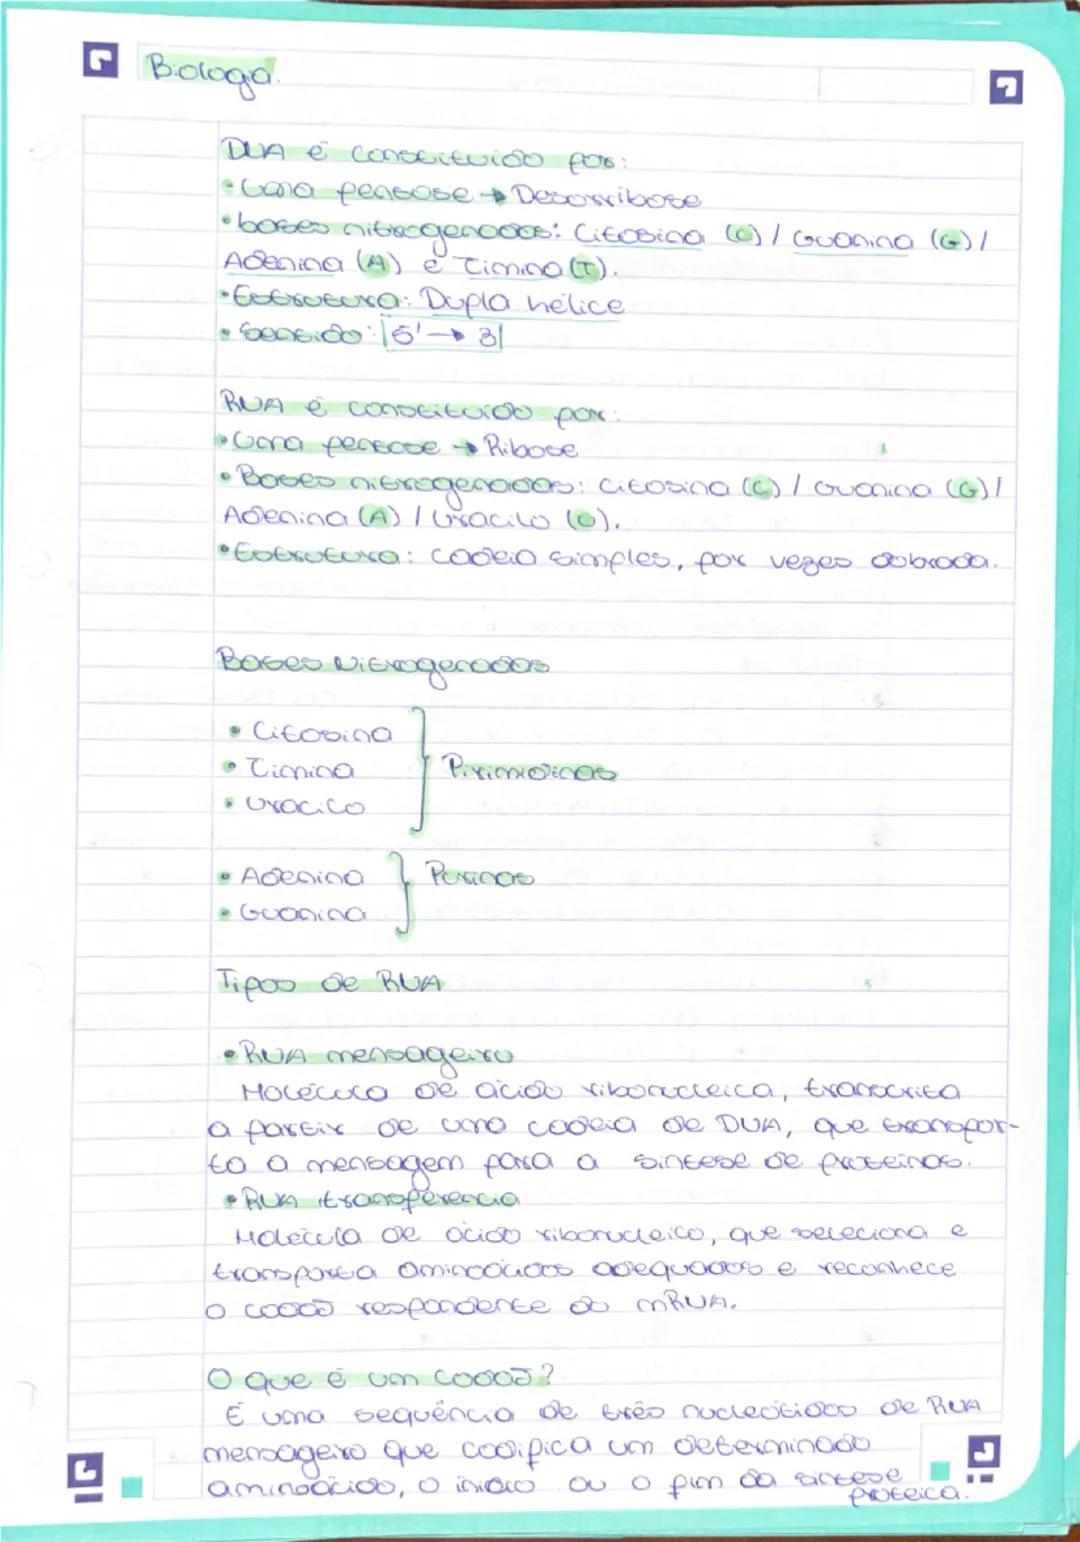 Biologia.
DNA é constituído por:
• Uma pentose → Desoxribose
• bases nitrogenadas: Citosina (C) / Guanina (G) /
Adenina (A) e Timina (T).
• Estrutura: Dupla hélice
• Sentido: 5' → 3'
RNA é constituído por:
• Uma pentose → Ribose
• Bases nitrogenadas: Citosina (C) / Guanina (G) /
Adenina (A) / Uracilo (U).
• Estrutura: cadeia simples, por vezes dobrada.
Bases Nitrogenadas
• Citosina
• Timina
• Uracilo
Pirimidinas
• Adenina
• Guanina
Purinas
Tipos de RNA
• RNA mensageiro
Molécula de ácido ribonucleica, transcrita
a partir de uma cadeia de DNA, que transpor-
ta a mensagem para a síntese de proteínas.
• RNA transferência
Molécula de ácido ribonucleico, que seleciona e
transporta aminoácidos adequados e reconhece
o codão respondente do mRNA.
O que é um codão?
É uma sequência de três nucleótidos de RNA
mensageiro que codifica um determinado
aminoácido, o início ou o fim da síntese
proteica.